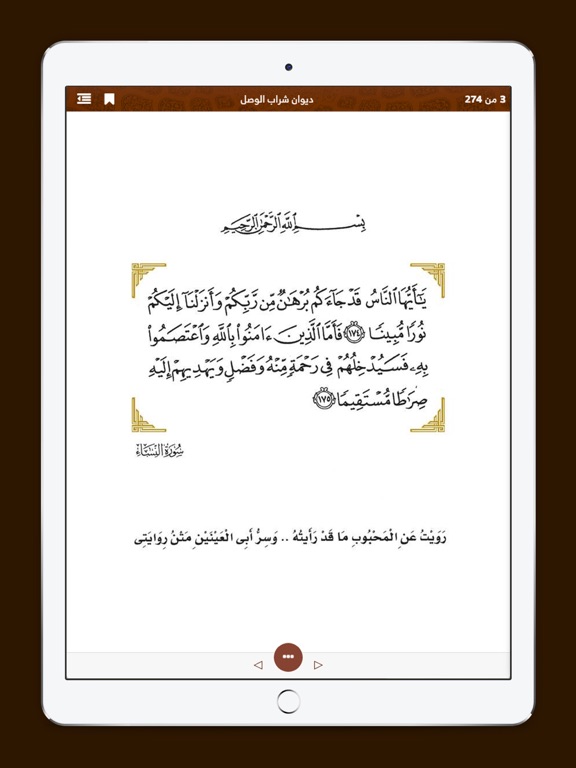 3 من 274
ديوان شراب الوصل
بِسْمِ ٱللَّهِ ٱلرَّحْمَٰنِ ٱلرَّحِيمِ
يَٰٓأَيُّهَا ٱلنَّاسُ قَدْ جَآءَكُم بُرْهَٰنٌ مِّن رَّبِّكُمْ وَأَنزَلْنَآ إِلَيْكُمْ
نُورًا مُّبِينًا ١٧٤ فَأَمَّا ٱلَّذِينَ ءَامَنُوا۟ بِٱللَّهِ وَٱعْتَصَمُوا۟
بِهِۦ فَسَيُدْخِلُهُمْ فِى رَحْمَةٍ مِّنْهُ وَفَضْلٍ وَيَهْدِيهِمْ إِلَيْهِ
صِرَٰطًا مُّسْتَقِيمًا ١٧٥
سُورَةُ النِّسَاء
رَوَيْتُ عَنِ الْمَحْبُوبِ مَا قَدْ رَأَيْتُهُ .. وَسِرُّ أَبِى الْعَيْنَيْنِ مَتْنُ رِوَايَتِى